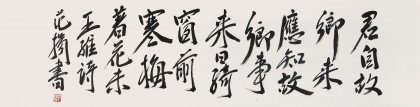 君自故
鄉来
應知故
鄉事
来日綺
窗前
寒梅
著花未
王維詩
范揚書